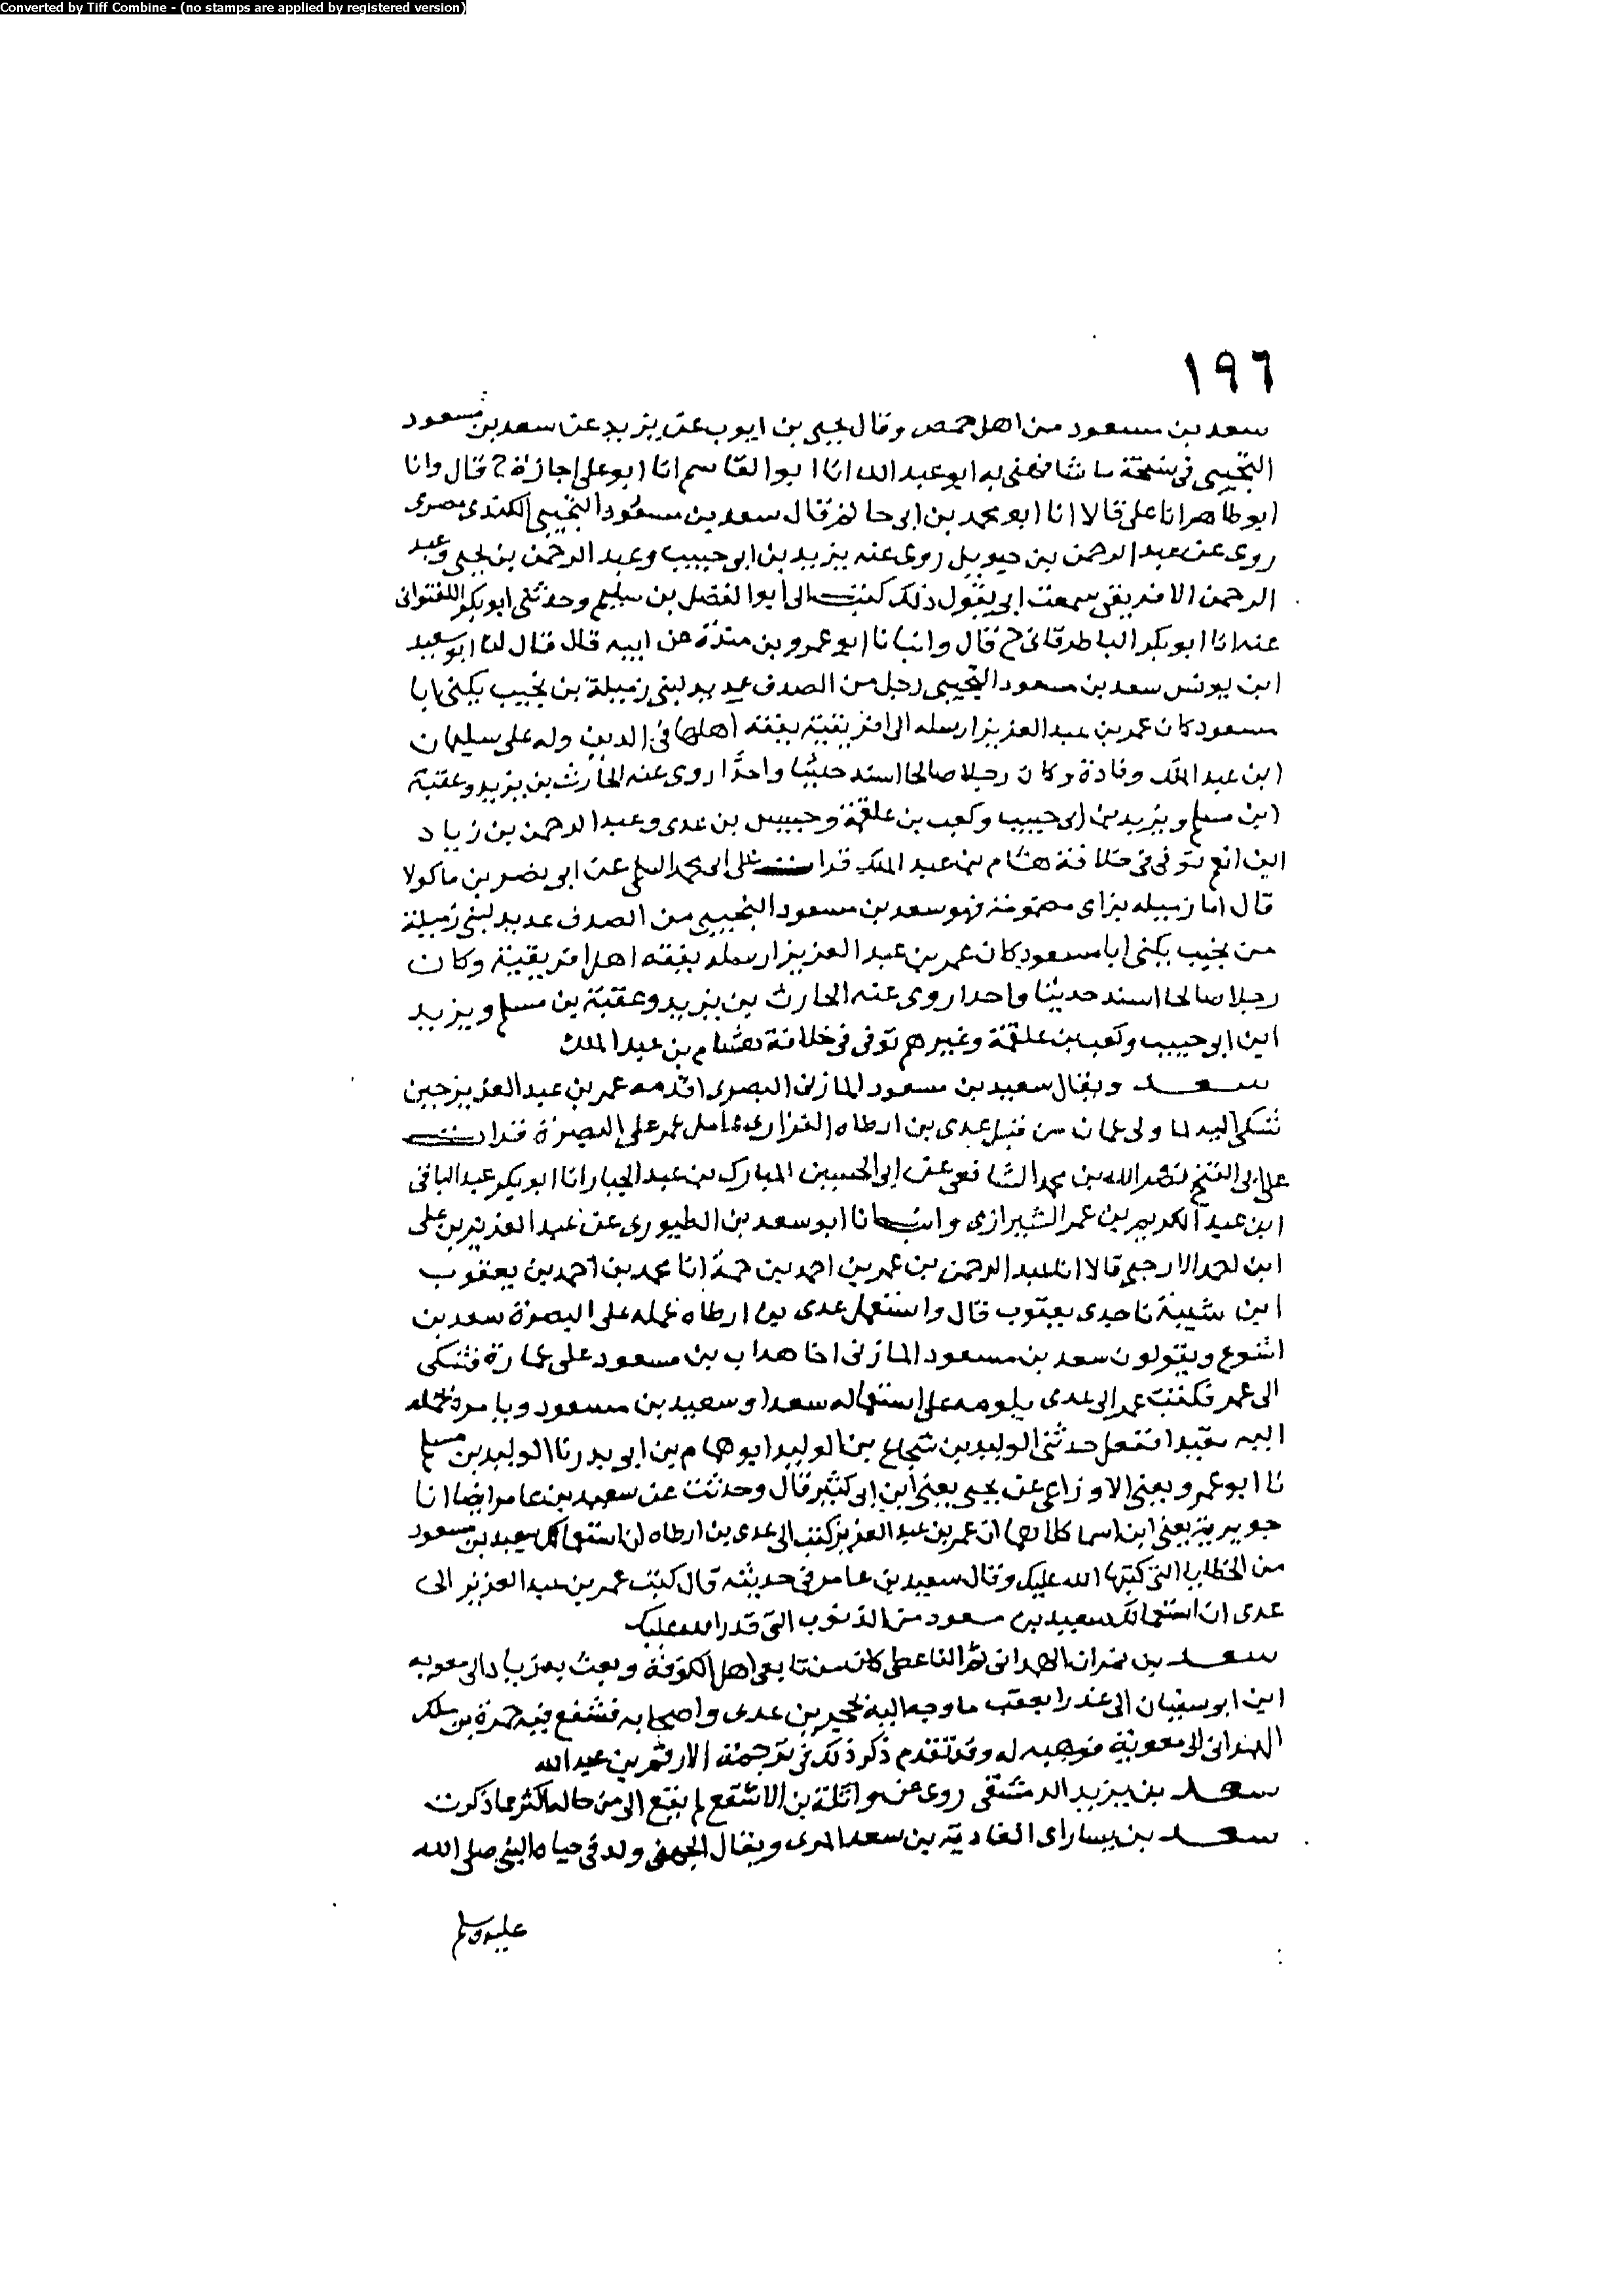 Converted by Tiff Combine - (no stamps are applied by registered version)
١٩٦
سعد بن مسعود من اهل حمص وقال يحيى بن ايوب عن يزيد عن سعد بن مسعود
التجيبى فى نسخة ما شافهنى به ابو عبد الله انا ابوا القاسم انا ابو على اجازة ح قال وانا
ابو طاهر انا على قالا انا ابو محمد بن ابى حاتم قال سعد بن مسعود التجيبى الكندى مصرى
روى عن عبد الرحمن بن حيويل روى عنه يزيد بن ابى حبيب وعبد الرحمن بن يحيى وعبد
الرحمن الافريقى سمعت ابى يقول ذلك كتب الى ابوا الفضل بن سليم وحدثنى ابو بكر اللفتوانى
عنه انا ابو بكر الباطرقانى ح قال وانبانا ابو عمرو بن مندة عن ابيه قال قال لنا ابو سعيد
ابن يونس سعد بن مسعود التجيبى رجل من الصدف عديد لبنى زميلة بن تجيب يكنى ابا
مسعود كان عمر بن عبد العزيز ارسله الى افريقية يفقه اهلها فى الدين وله على سليمان
ابن عبد الملك وفادة وكان رجلا صالحا اسند حديثا واحدا روى عنه الحارث بن يزيد وعقبة
ابن مسلم ويزيد بن ابى حبيب وكعب بن علقمة وحبيس بن عدى وعبد الرحمن بن زياد
ابن انعم توفى فى خلافة هشام بن عبد الملك قرات على ابى محمد السلمى عن ابى نصر بن ماكولا
قال اما زميله بزاى مضمومة فهو سعد بن مسعود التجيبى من الصدف عديد لبنى زميلة
من تجيب يكنى ابا مسعود كان عمر بن عبد العزيز ارسله يفقه اهل افريقية وكان
رجلا صالحا اسند حديثا واحدا روى عنه الحارث بن يزيد وعقبة بن مسلم ويزيد
ابن ابى حبيب وكعب بن علقمة وغيرهم توفى فى خلافة هشام بن عبد الملك
سعد ويقال سعيد بن مسعود المازنى البصرى اقدمه عمر بن عبد العزيز حين
شكى اليه لما ولى عمان من قبل عدى بن ارطاه الفزارى عامل عمر على البصرة قرات
على ابى الفتح نصر الله بن محمد الشافعى عن ابى الحسين المبارك بن عبد الجبار انا ابو بكر عبد الباقى
ابن عبد الكريم بن عمر الشيرازى وانبانا ابو سعد بن الطيورى عن عبد العزيز بن على
ابن احمد الارجى قالا انا عبد الرحمن بن عمر بن احمد بن حمة انا محمد بن احمد بن يعقوب
ابن شيبة نا جدى يعقوب قال واستعمل عدى بن ارطاه عمله على البصرة سعد بن
اشوع ويقولون سعد بن مسعود المازنى اخا هداب بن مسعود على عمارة فشكى
الى عمر فكتب عمر الى عدى يلومه على استعماله سعدا وسعيد بن مسعود ويامره بحمله
اليه مقيدا ففعل حدثنى الوليد بن شجاع بن الوليد ابو همام بن ابى بدر نا الوليد بن مسلم
نا ابو عمرو يعنى الاوزاعى عن يحيى يعنى ابن ابى كثير قال وحدثت عن سعيد بن عامر ايضا انا
جويرية يعنى ابن اسما كلاهما ان عمر بن عبد العزيز كتب الى عدى بن ارطاه ان استعمالك سعيد بن مسعود
من الخطايا التى كتبها الله عليك وقال سعيد بن عامر فى حديثه قال كتب عمر بن عبد العزيز الى
عدى ان استعمالك سعيد بن مسعود من الذنوب التى قدر الله عليك
سعد بن نمران الهمدانى ثم الناعطى كان من تابعى اهل الكوفة وبعث به زياد الى معوية
ابن ابو سفيان الى عذرا بعقب ما وجه اليه بحجر بن عدى واصحابه فشفع فيه حمزة بن ملك
الهمدانى الى معوية فوهبه له وقد تقدم ذكر ذلك فى ترجمة الارقم بن عبد الله
سعد بن يزيد الدمشقى روى عن واثلة بن الاسقع لم يقع الى من حاله اكثر مما ذكرت
سعد بن يسار اى الغادية بن سعد المرى ويقال الجهنى ولد فى حياه النبى صلى الله
عليه وسلم